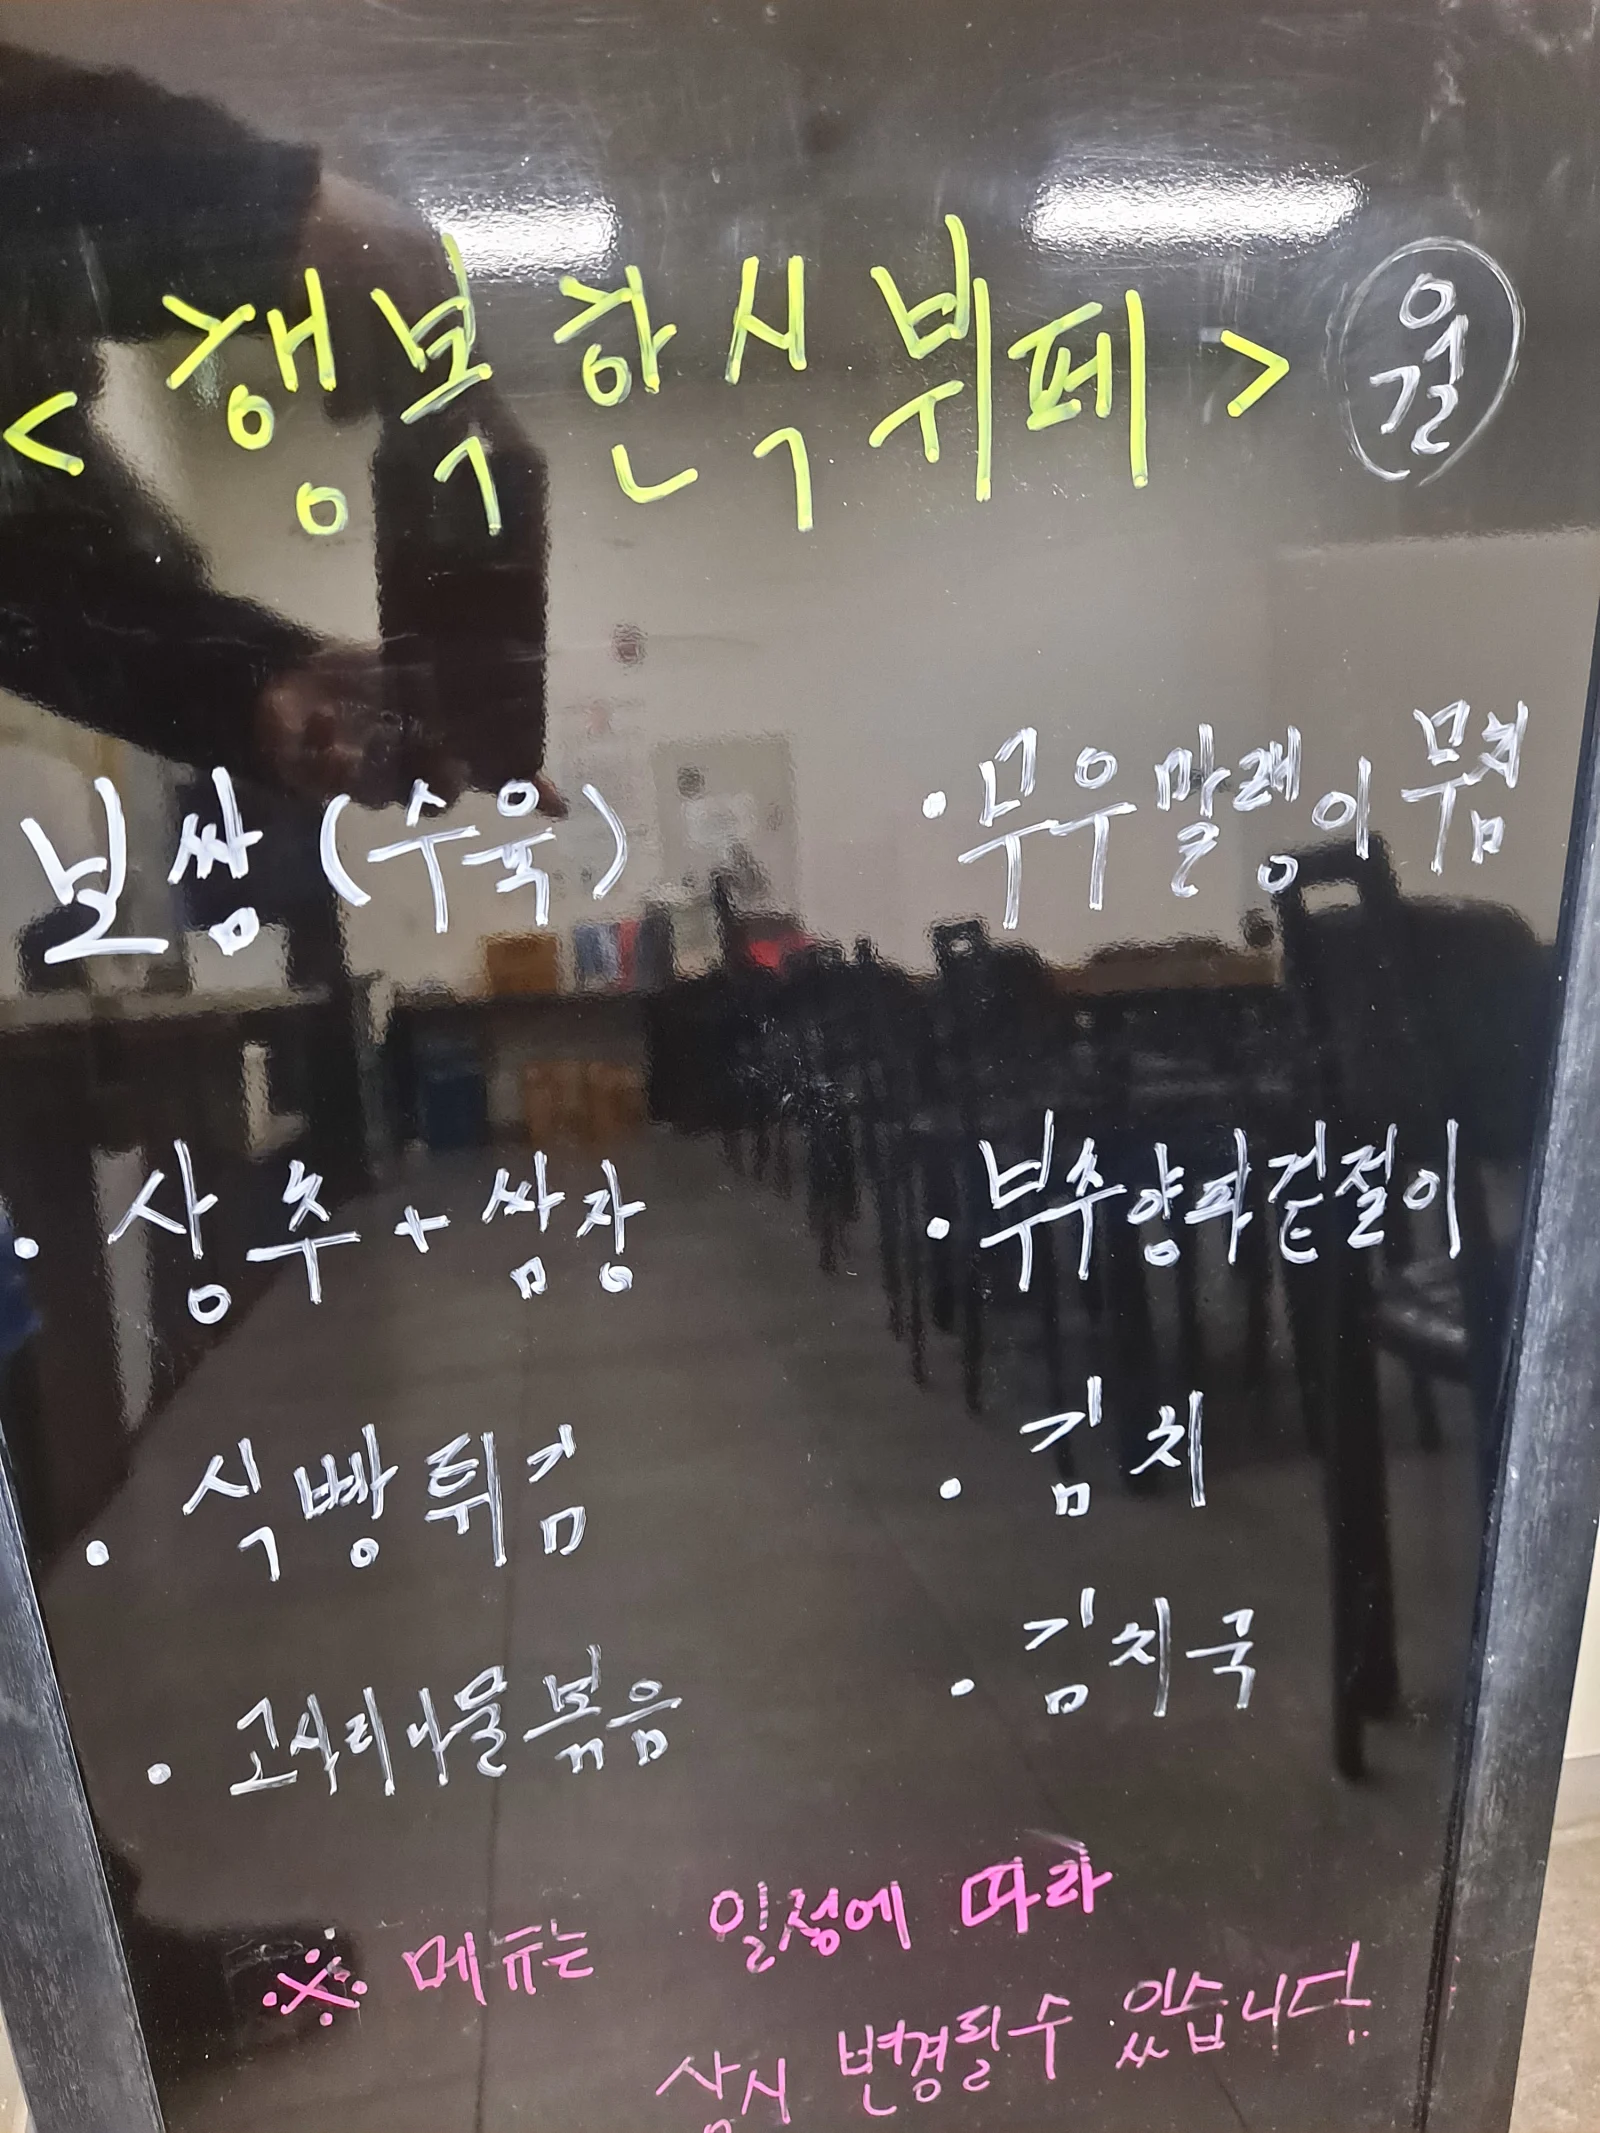 < 행복한식뷔페 > 월
보쌈 (수육)
· 상추 + 쌈장
· 식빵튀김
· 고사리나물볶음
· 무우말랭이무침
· 부추양파겉절이
· 김치
· 김치국
※ 메뉴는 일정에 따라
상시 변경될수 있습니다.